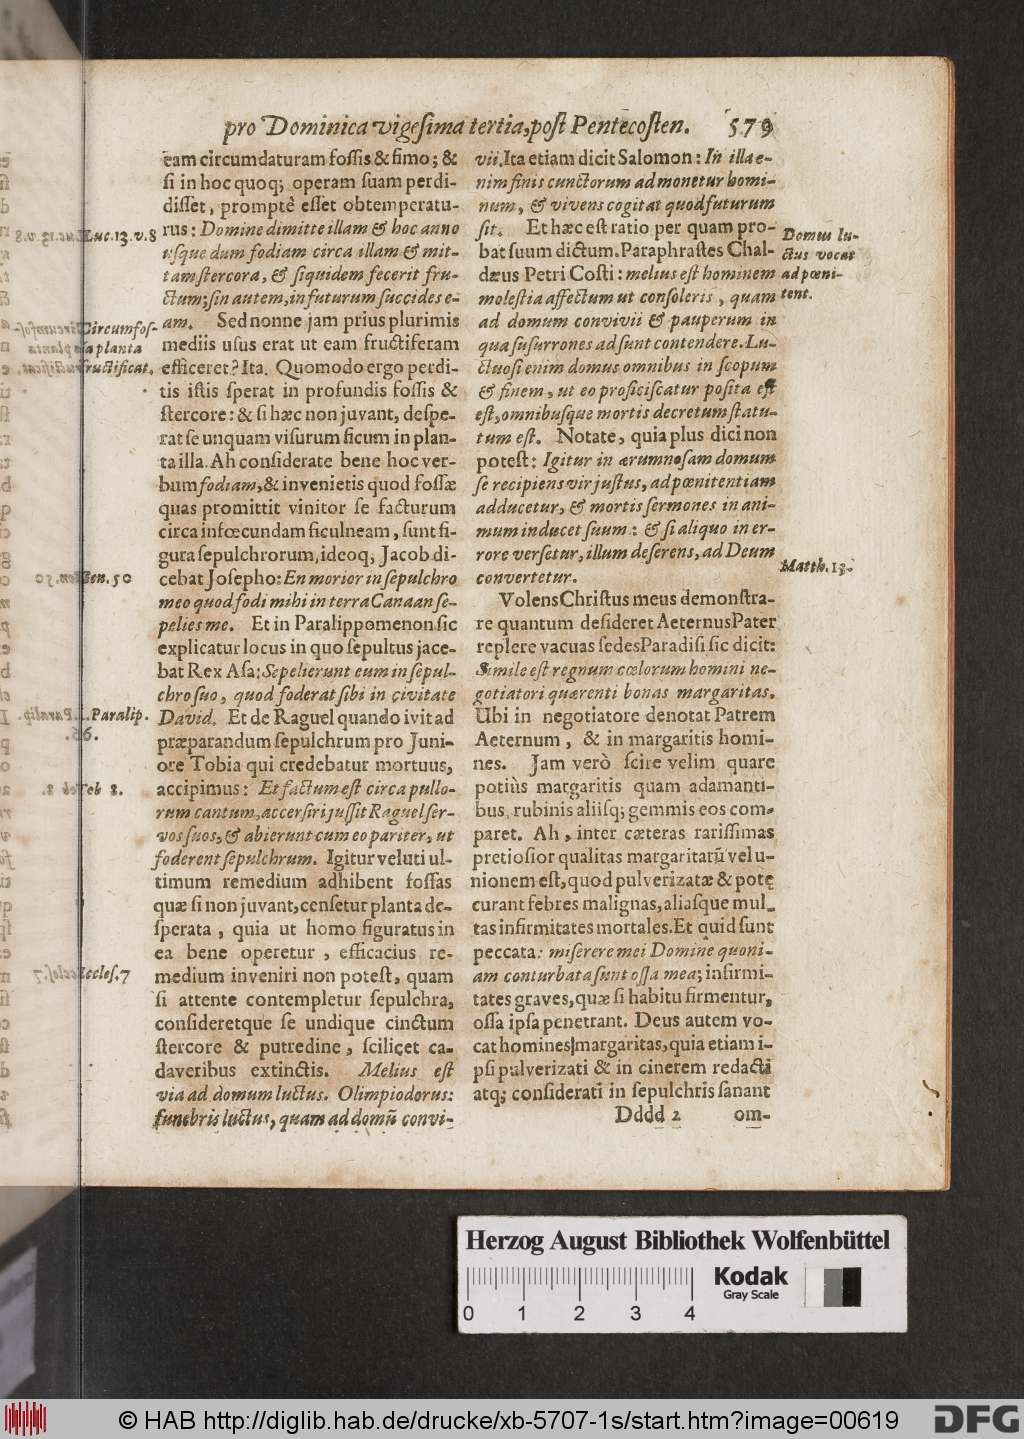 pro Dominica vigesima tertia, post Pentecosten. 579
eam circumdaturam fossis & fimo; &
si in hoc quoq; operam suam perdi-
disset, promptè esset obtemperatu-
rus: Domine dimitte illam & hoc anno
usque dum fodiam circa illam & mit-
tam stercora, & siquidem fecerit fru-
ctum; sin autem, in futurum succides e-
am. Sed nonne jam prius plurimis
mediis usus erat ut eam fructiferam
efficeret? Ita. Quomodo ergo perdi-
tis istis sperat in profundis fossis &
stercore: & si hæc non juvant, despe-
rat se unquam visurum ficum in plan-
ta illa. Ah considerate bene hoc ver-
bum fodiam, & invenietis quod fossæ
quas promittit vinitor se facturum
circa infœcundam ficulneam, sunt fi-
gura sepulchrorum, ideoq; Jacob di-
cebat Josepho: En morior in sepulchro
meo quod fodi mihi in terra Canaan se-
pelies me. Et in Paralippomenon sic
explicatur locus in quo sepultus jace-
bat Rex Asa: Sepelierunt eum in sepul-
chro suo, quod foderat sibi in civitate
David. Et de Raguel quando ivit ad
præparandum sepulchrum pro Juni-
ore Tobia qui credebatur mortuus,
accipimus: Et factum est circa pullo-
rum cantum, accersiri jussit Raguel ser-
vos suos, & abierunt cum eo pariter, ut
foderent sepulchrum. Igitur veluti ul-
timum remedium adhibent fossas
quæ si non juvant, censetur planta de-
sperata, quia ut homo figuratus in
ea bene operetur, efficacius re-
medium inveniri non potest, quam
si attente contempletur sepulchra,
consideretque se undique cinctum
stercore & putredine, scilicet ca-
daveribus extinctis. Melius est
via ad domum luctus. Olimpiodorus:
funebris luctus, quam ad domũ convi-
Luc. 13. v. 8
Circumfos-
sa planta
fructificat.
Gen. 50
2. Paralip.
16.
Tob 8.
Eccles. 7
vii. Ita etiam dicit Salomon: In illa e-
nim finis cunctorum admonetur homi-
num, & vivens cogitat quod futurum
sit. Et hæc est ratio per quam pro-
bat suum dictum. Paraphrastes Chal-
dæus Petri Costi: melius est hominem
molestia affectum ut consoleris, quam
ad domum convivii & pauperum in
qua susurrones adsunt contendere. Lu-
ctuosi enim domus omnibus in scopum
& finem, ut eo proficiscatur posita est
est, omnibusque mortis decretum statu-
tum est. Notate, quia plus dici non
potest: Igitur in ærumnosam domum
se recipiens vir justus, ad pœnitentiam
adducetur, & mortis sermones in ani-
mum inducet suum: & si aliquo in er-
rore versetur, illum deserens, ad Deum
convertetur.
Volens Christus meus demonstra-
re quantum desideret Aeternus Pater
replere vacuas sedes Paradisi sic dicit:
Simile est regnum cœlorum homini ne-
gotiatori quærenti bonas margaritas.
Ubi in negotiatore denotat Patrem
Aeternum, & in margaritis homi-
nes. Jam verò scire velim quare
potiùs margaritis quam adamanti-
bus, rubinis aliisq; gemmis eos com-
paret. Ah, inter cæteras rarissimas
pretiosior qualitas margaritarũ vel u-
nionem est, quod pulverizatæ & potę
curant febres malignas, aliasque mul-
tas infirmitates mortales. Et quid sunt
peccata: miserere mei Domine quoni-
am conturbata sunt ossa mea; infirmi-
tates graves, quæ si habitu firmentur,
ossa ipsa penetrant. Deus autem vo-
cat homines margaritas, quia etiam i-
psi pulverizati & in cinerem redacti
atq; considerati in sepulchris sanant
Dddd 2 om-
Domus lu-
ctus vocat
ad pœni-
tent.
Matth. 13.
Herzog August Bibliothek Wolfenbüttel
0 1 2 3 4
Kodak
Gray Scale
© HAB http://diglib.hab.de/drucke/xb-5707-1s/start.htm?image=00619
DFG